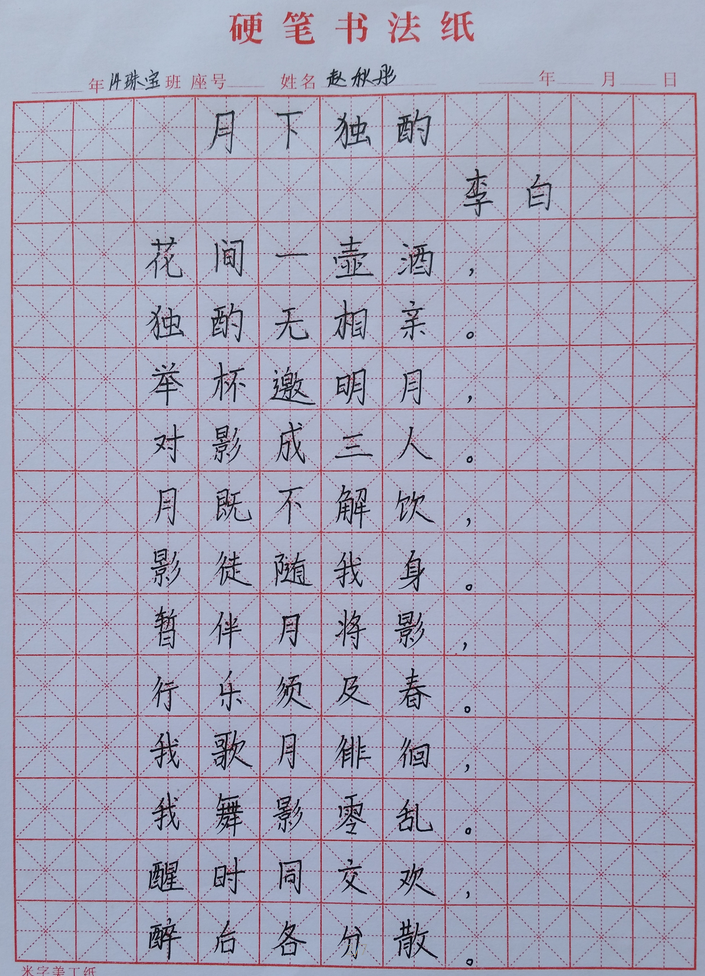 硬笔书法纸
年14珠宝班 座号 姓名赵秋彤 年 月 日
月下独酌
李白
花间一壶酒，
独酌无相亲。
举杯邀明月，
对影成三人。
月既不解饮，
影徒随我身。
暂伴月将影，
行乐须及春。
我歌月徘徊，
我舞影零乱。
醒时同交欢，
醉后各分散。
米字美工纸